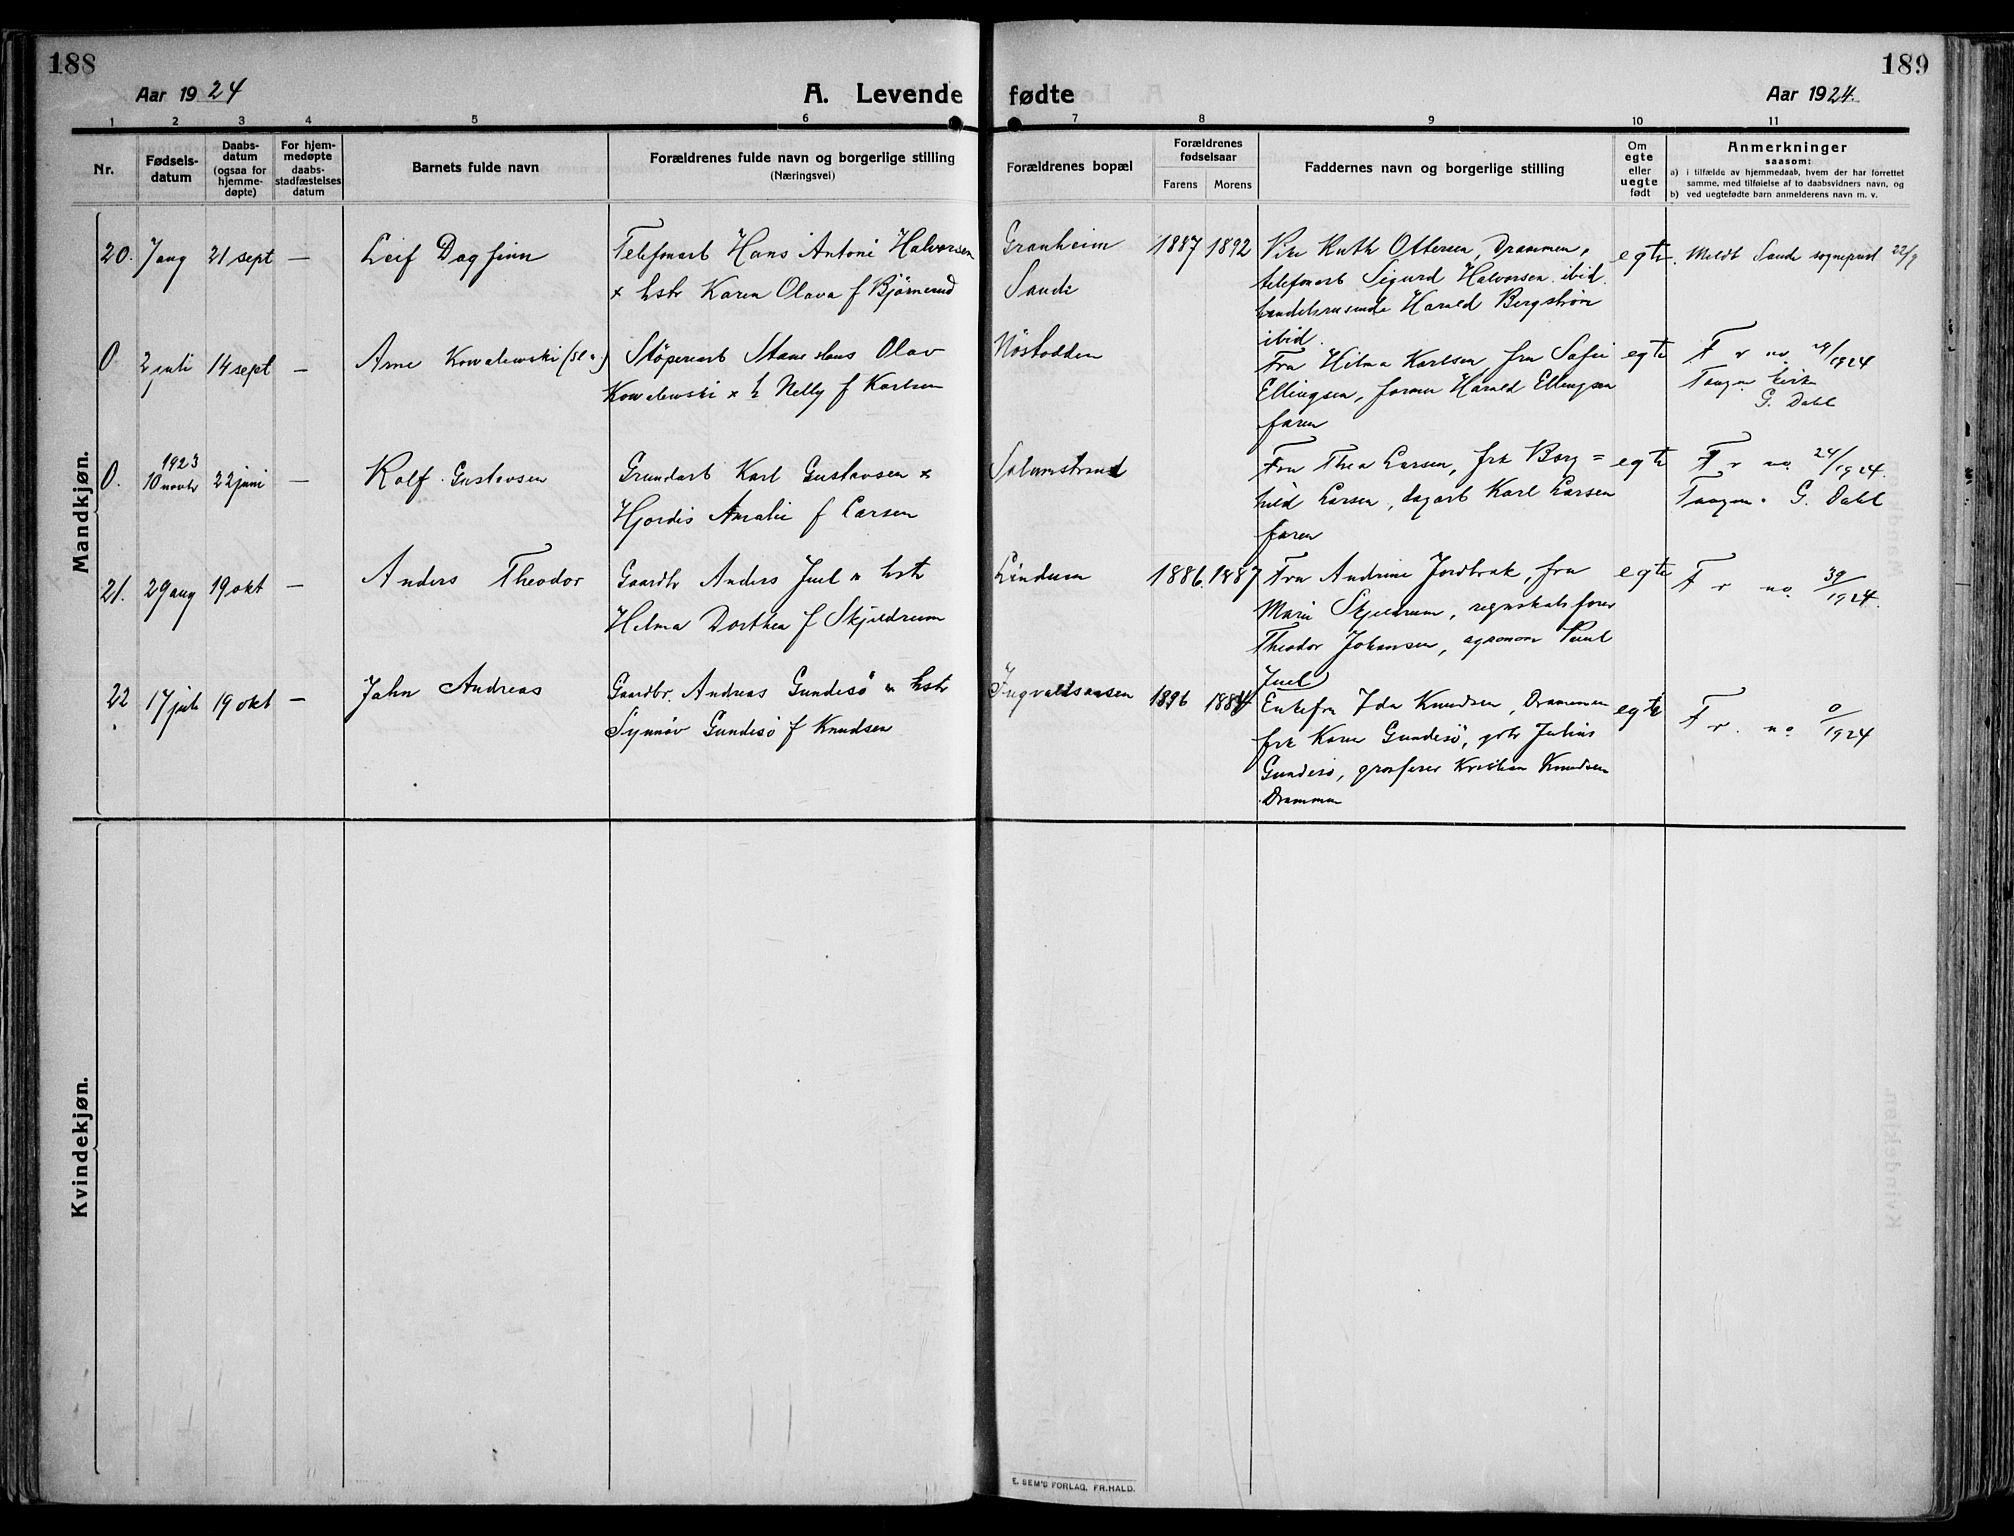 188
Aar 1924
A. Levende fødte
Aar 1924.
189
1 2 3 4 5 6 7 8 9 10 11
Nr.
Fødsels-
datum
Daabs-
datum
(ogsaa for
hjemme-
døpte)
For hjem-
medøpte
daabs-
stadfæstelses
datum
Barnets fulde navn
Forældrenes fulde navn og borgerlige stilling
(Næringsvei)
Forældrenes bopæl
Forældrenes
fødselsaar
Farens Morens
Faddernes navn og borgerlige stilling
Om
egte
eller
uegte
født
Anmerkninger
saasom:
a) i tilfælde av hjemmedaab, hvem der har forrettet
samme, med tilføielse af to daabsvidners navn, og
b) ved uegtefødte barn anmelderens navn m. v.
Mandkjøn.
20. 7 aug 21 sept — Leif Dagfinn
Telefonarb Hans Antoni Halvorsen
x hstr Karen Olava f Bjørnerud
Granheim
Sande
1887 1892
Ruth Ottersen, Drammen,
telefonarb Sigurd Halvorsen ibid.
handelsreisende Harald Bergstrøm
ibid.
egte. Meldt Sande sogneprest 22/9
0 2 juli 14 sept — Arne Kowalewski
Støperiarb Olav
Kowalewski x h Nelly f Karlsen
Nøstodden
Fru Hilma Karlsen, fru Sofie
Ellingsen, former Harald Ellingsen
faren
egte F r no 29/1924
Tangen kirke
G. Dahl
0. 1923
10 novbr 22 juni — Rolf Gustavsen
Grundarb Karl Gustavsen x
Hjordis Amalie f Larsen
Solumstrand
Fru Thea Larsen, frk Borg=
hild Larsen, dagarb Karl Larsen
faren
egte F r no. 24/1924.
Tangen. G. Dahl
21. 29 aug 19 okt — Anders Theodor
Gaardbr Anders Juel x hstr
Helma Dorthea f Skjeldrum
Lindum
1886. 1887
Fru Andrine Jordbrek, fru
Marie Skjeldrum, regnskabsfører
Theodor Johansen, agronom Paul
Juel
egte F r no. 39/1924.
22 17 juli 19 okt — John Andreas
Gaardbr. Andreas Gundesø x hstr
Synnøv Gundesø f Knudsen
Ingvaldsaasen
1896 1884
Enkefru Ida Knudsen, Drammen
frk Karen Gundesø, gbr Julius
Gundesø, grosserer Kristian Knudsen
Drammen
egte F r. no 0/1924
Kvindekjøn.
E. SEM'S FORLAG, FR.HALD.